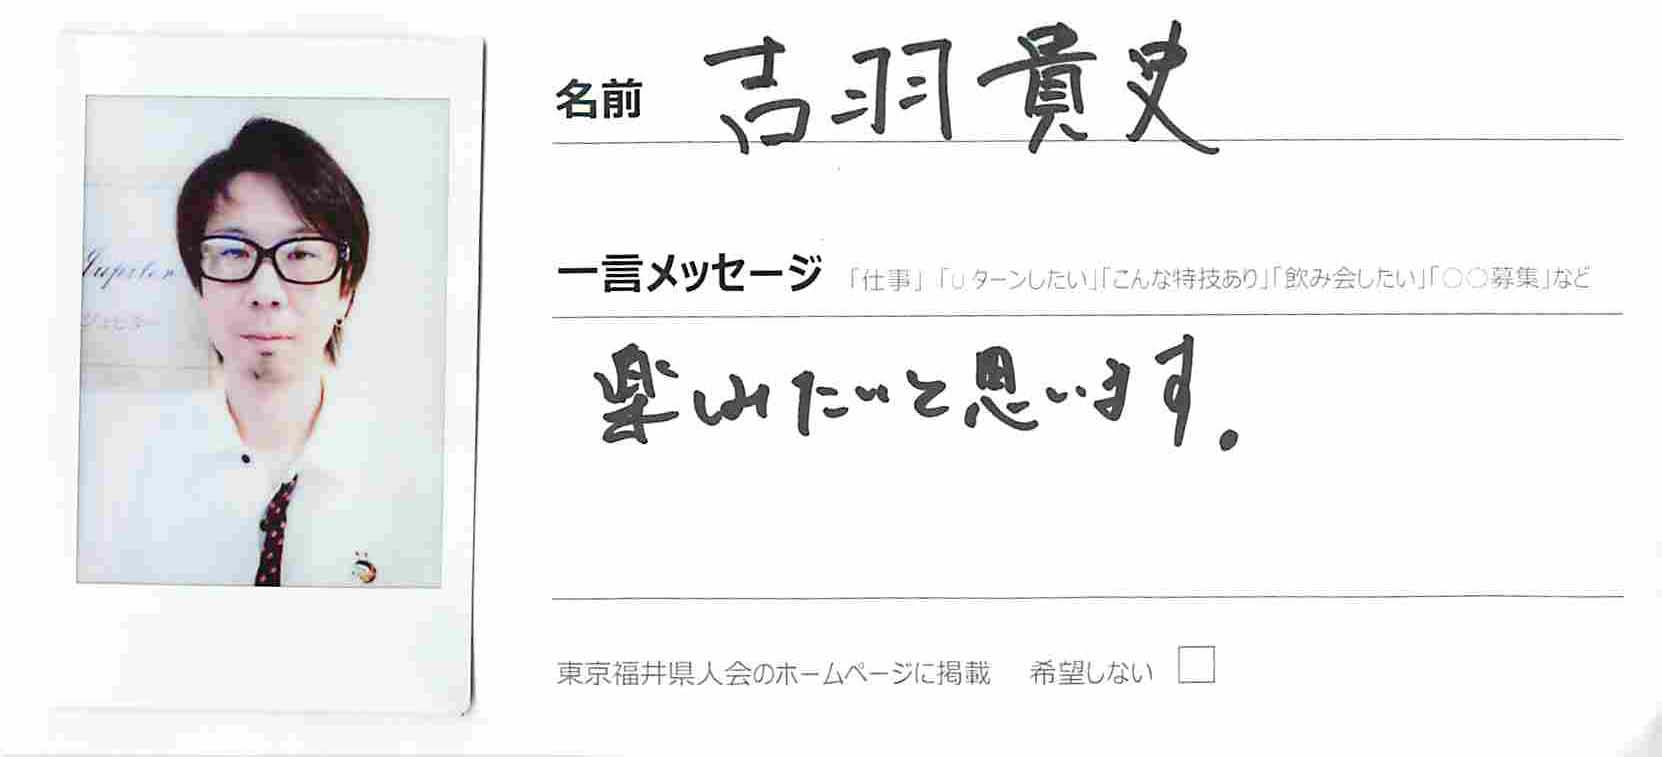 Jupiter
ジュピター
名前 吉羽貴史
一言メッセージ 「仕事」「Uターンしたい」「こんな特技あり」「飲み会したい」「〇〇募集」など
楽しみたいと思います。
東京福井県人会のホームページに掲載 希望しない □